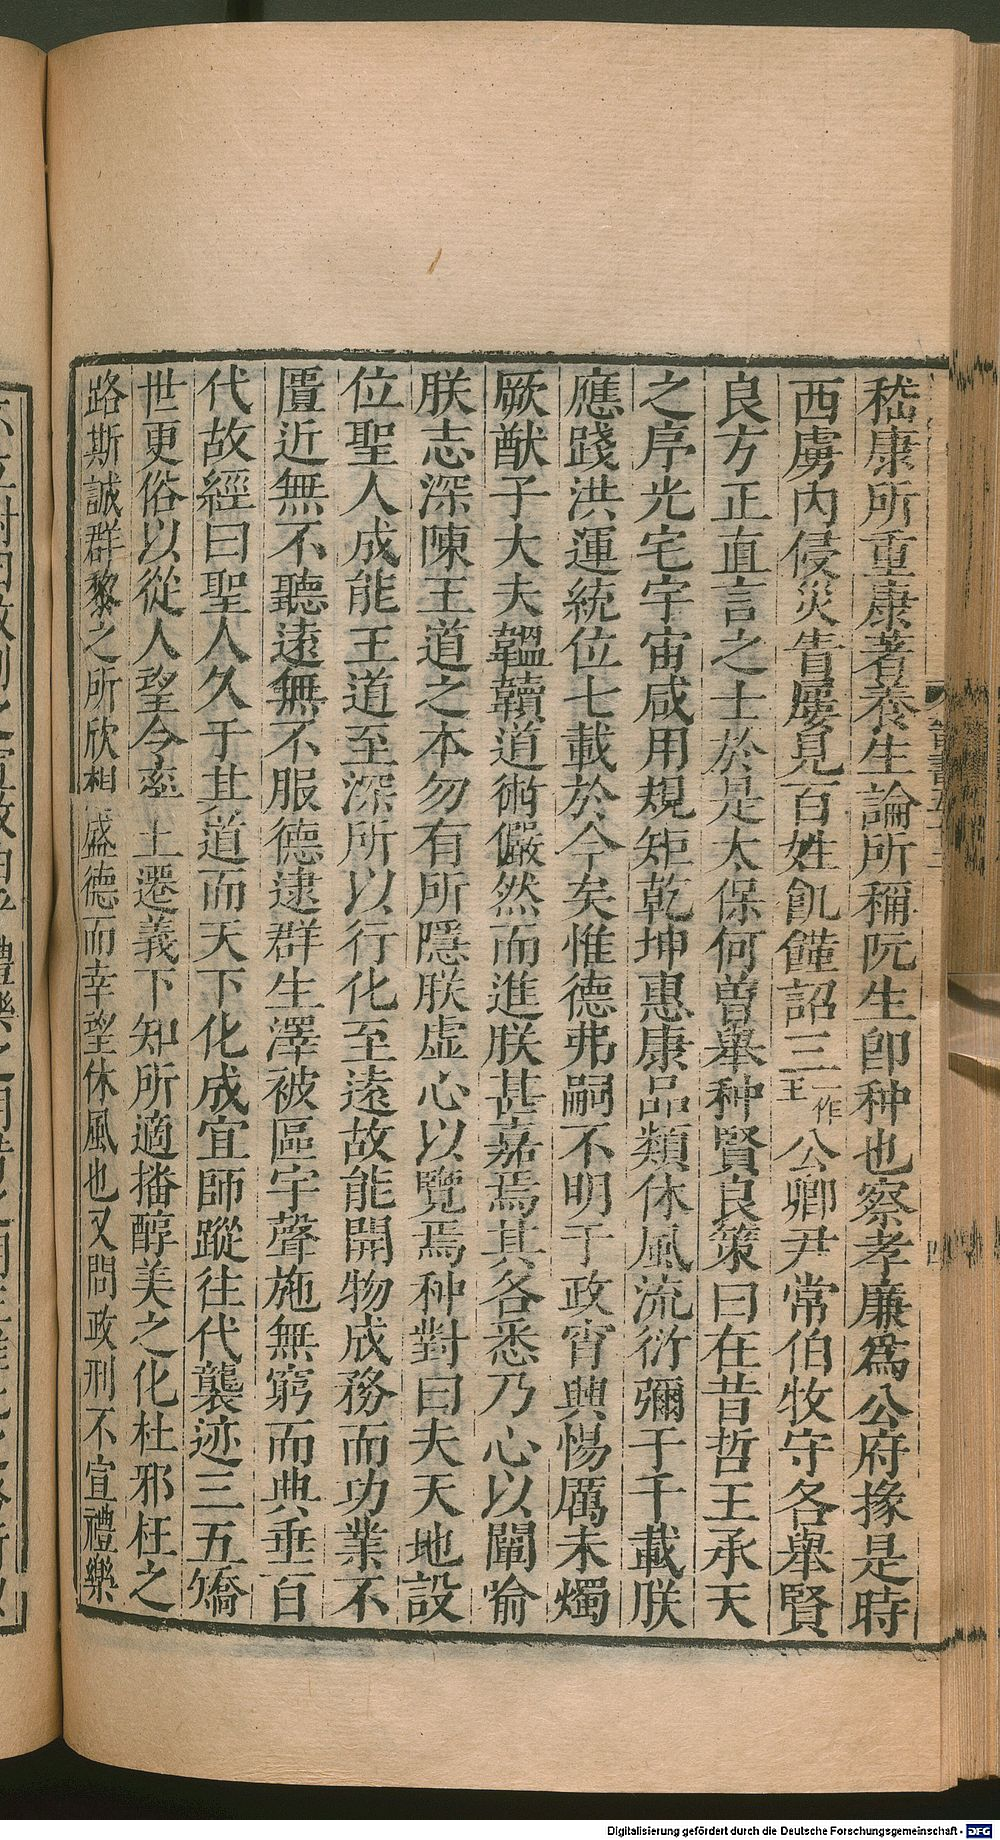 嵇康所重康著養生論所稱阮生卽种也察孝廉爲公府掾是時
西虜內侵災眚屢見百姓飢饉詔三一作王公卿尹常伯牧守各舉賢
良方正直言之士於是太保何曾舉种賢良策曰在昔哲王承天
之序光宅宇宙咸用規矩乾坤惠康品類休風流衍彌于千載朕
應踐洪運統位七載於今矣惟德弗嗣不明于政宵興惕厲未燭
厥猷子大夫韞韥道術儼然而進朕甚嘉焉其各悉乃心以闡喻
朕志深陳王道之本勿有所隱朕虛心以覽焉种對曰夫天地設
位聖人成能王道至深所以行化至遠故能開物成務而功業不
匱近無不聽遠無不服德逮群生澤被區宇聲施無窮而典垂百
代故經曰聖人久于其道而天下化成宜師蹤往代襲迹三五矯
世更俗以從人望令率土遷義下知所適播醇美之化杜邪枉之
路斯誠群黎之所欣想盛德而幸望休風也又問政刑不宣禮樂
Digitalisierung gefördert durch die Deutsche Forschungsgemeinschaft - DFG